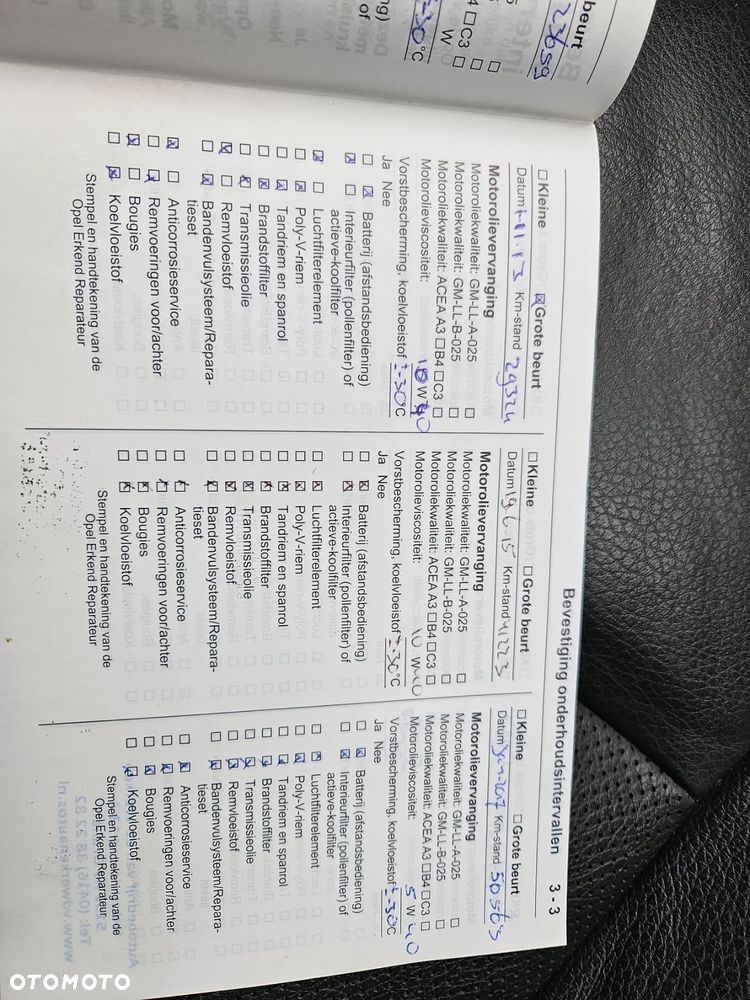 Bevestiging onderhoudsintervallen 3 - 3
beurt
23659
4 ☐ C3 ☐
W
-30°C
of
☐ Kleine ☒ Grote beurt
Datum 1-11-13 Km-stand 29324
Motorolievervanging
Motoroliekwaliteit: GM-LL-A-025 ☐
Motoroliekwaliteit: GM-LL-B-025 ☐
Motoroliekwaliteit: ACEA A3 ☐ B4 ☐ C3 ☐
Motorolieviscositeit: 10 W 40
Vorstbescherming, koelvloeistof -30°C
Ja Nee
Batterij (afstandsbediening)
Interieurfilter (pollenfilter) of
actieve-koolfilter
Luchtfilterelement
Poly-V-riem
Tandriem en spanrol
Brandstoffilter
Transmissieolie
Remvloeistof
Bandenvulsysteem/Repara-
tieset
Anticorrosieservice
Remvoeringen voor/achter
Bougies
Koelvloeistof
Stempel en handtekening van de
Opel Erkend Reparateur
☐ Kleine ☐ Grote beurt
Datum 19 6-15 Km-stand 41223
Motorolievervanging
Motoroliekwaliteit: GM-LL-A-025 ☐
Motoroliekwaliteit: GM-LL-B-025 ☐
Motoroliekwaliteit: ACEA A3 ☐ B4 ☐ C3 ☐
Motorolieviscositeit: 10 W 40
Vorstbescherming, koelvloeistof -30°C
Ja Nee
Batterij (afstandsbediening)
Interieurfilter (pollenfilter) of
actieve-koolfilter
Luchtfilterelement
Poly-V-riem
Tandriem en spanrol
Brandstoffilter
Transmissieolie
Remvloeistof
Bandenvulsysteem/Repara-
tieset
Anticorrosieservice
Remvoeringen voor/achter
Bougies
Koelvloeistof
Stempel en handtekening van de
Opel Erkend Reparateur
☐ Kleine ☐ Grote beurt
Datum Km-stand 50563
Motorolievervanging
Motoroliekwaliteit: GM-LL-A-025 ☐
Motoroliekwaliteit: GM-LL-B-025 ☐
Motoroliekwaliteit: ACEA A3 ☐ B4 ☐ C3 ☐
Motorolieviscositeit: 5 W 40
Vorstbescherming, koelvloeistof -30°C
Ja Nee
Batterij (afstandsbediening)
Interieurfilter (pollenfilter) of
actieve-koolfilter
Luchtfilterelement
Poly-V-riem
Tandriem en spanrol
Brandstoffilter
Transmissieolie
Remvloeistof
Bandenvulsysteem/Repara-
tieset
Anticorrosieservice
Remvoeringen voor/achter
Bougies
Koelvloeistof
Stempel en handtekening van de
Opel Erkend Reparateur
OTOMOTO